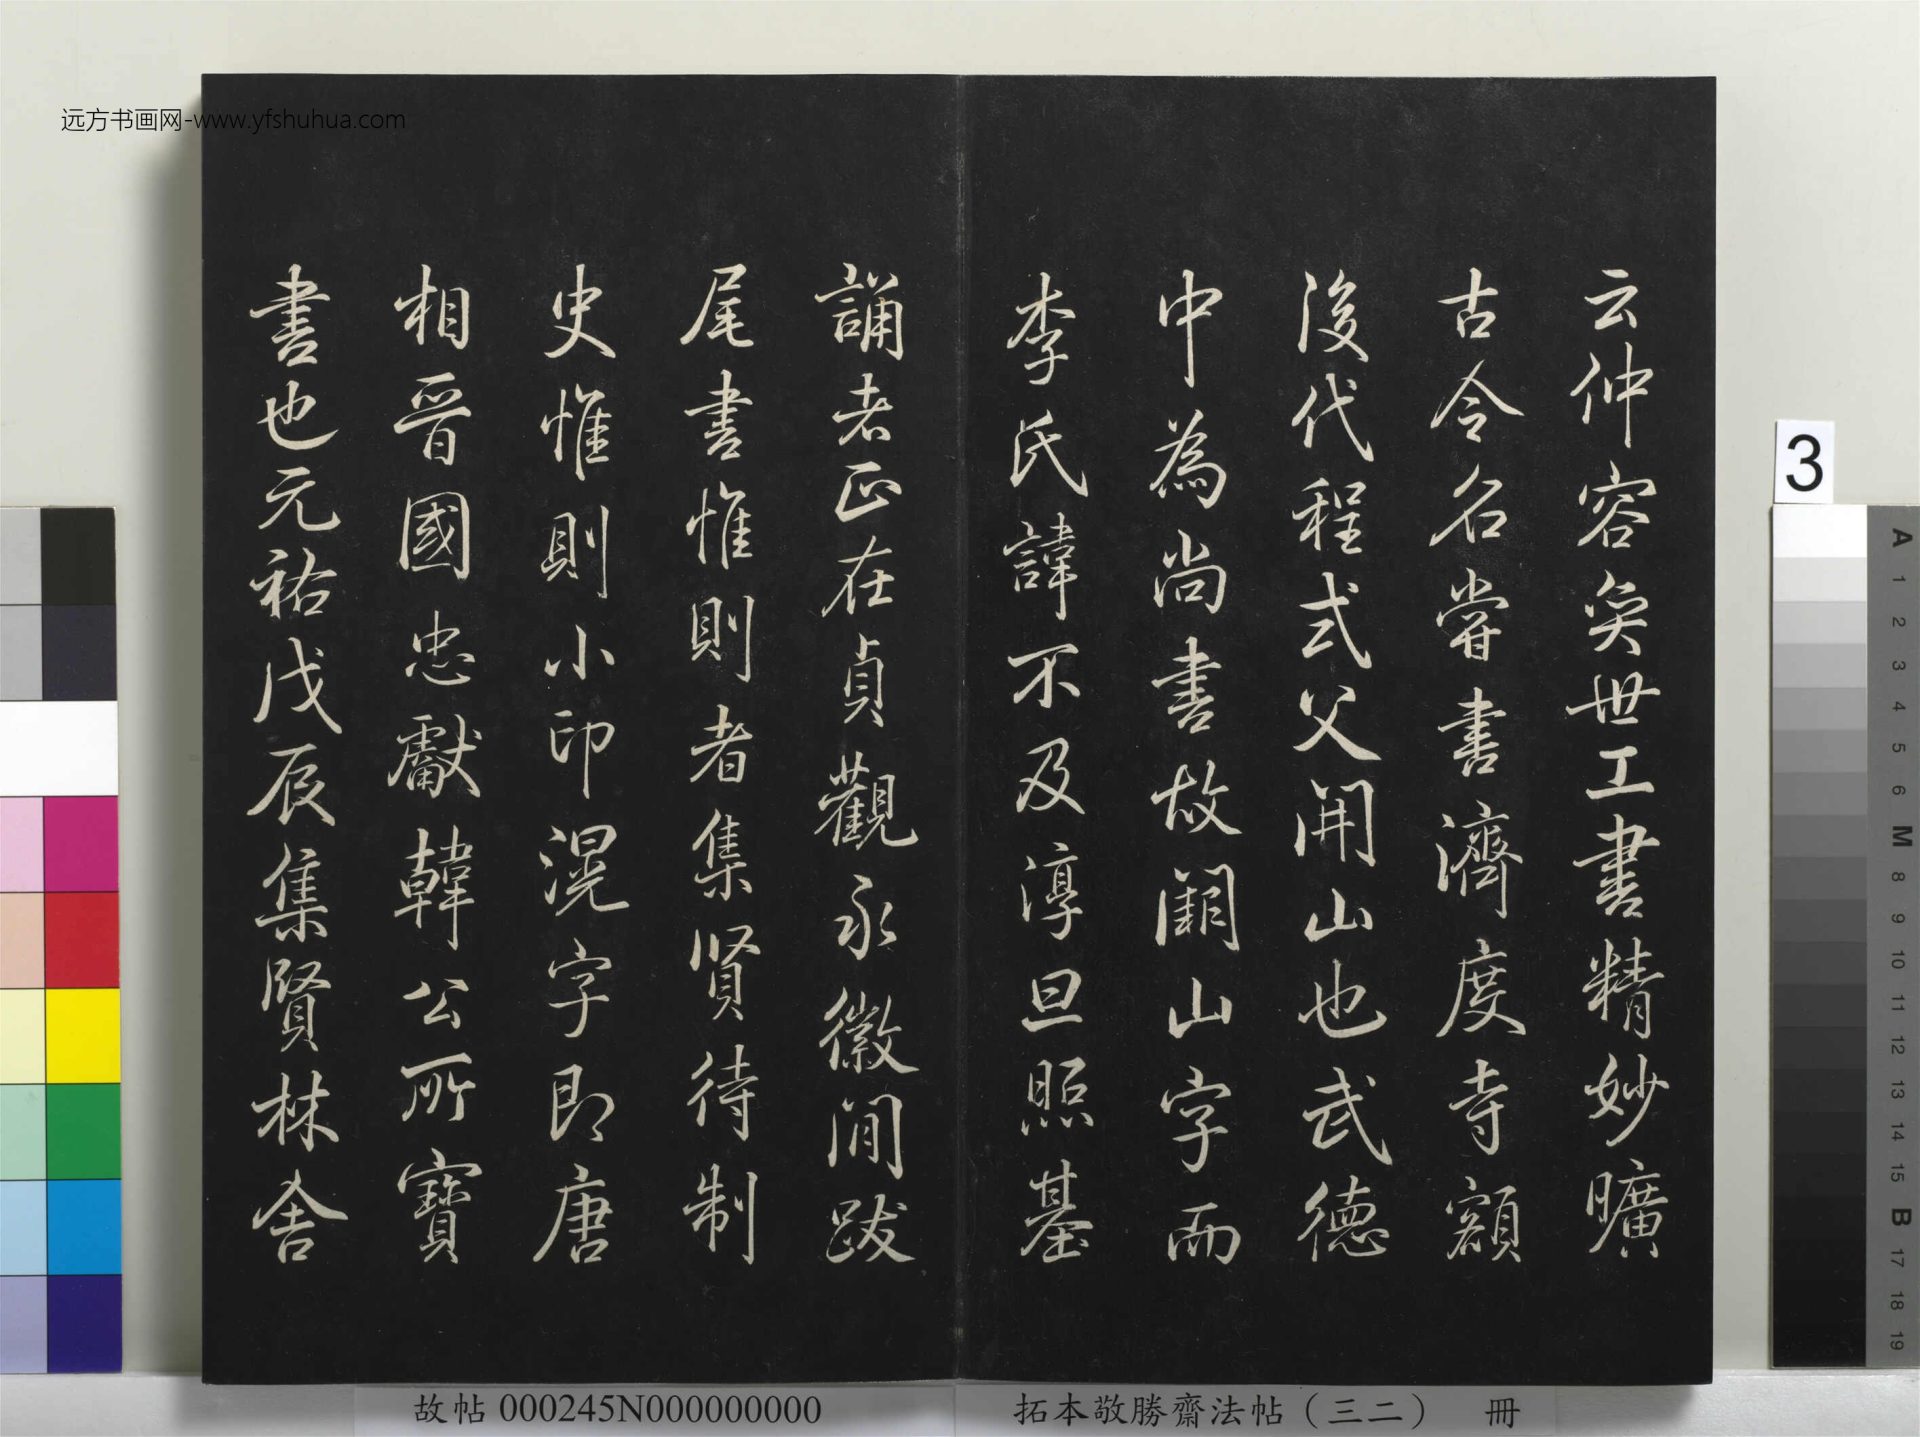 云仲容奕世工書精妙曠
古今名嘗書濟度寺額
後代程式父開山也武德
中為尚書故闕山字而
李氏諱不及淳旦照基
誦者正在貞觀永徽間跋
尾書惟則者集贤待制
史惟則小印滉字即唐
相晉國忠獻韓公所寶
書也元祐戊辰集賢林舍
远方书画网-www.yfshuhua.com
3
故帖 000245N000000000
拓本敬勝齋法帖（三二） 冊
A
1
2
3
4
5
6
M
8
9
10
11
12
13
14
15
B
17
18
19